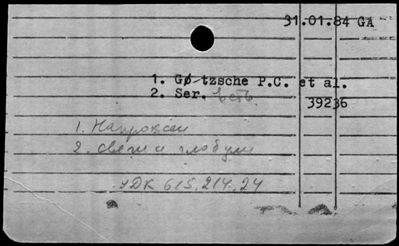 31.01.84 GA
1. Gø-tzsche P.C. et al.
2. Ser. есть
39236
1. Напроксен
2. свечи и глобули
УДК 615.214.24